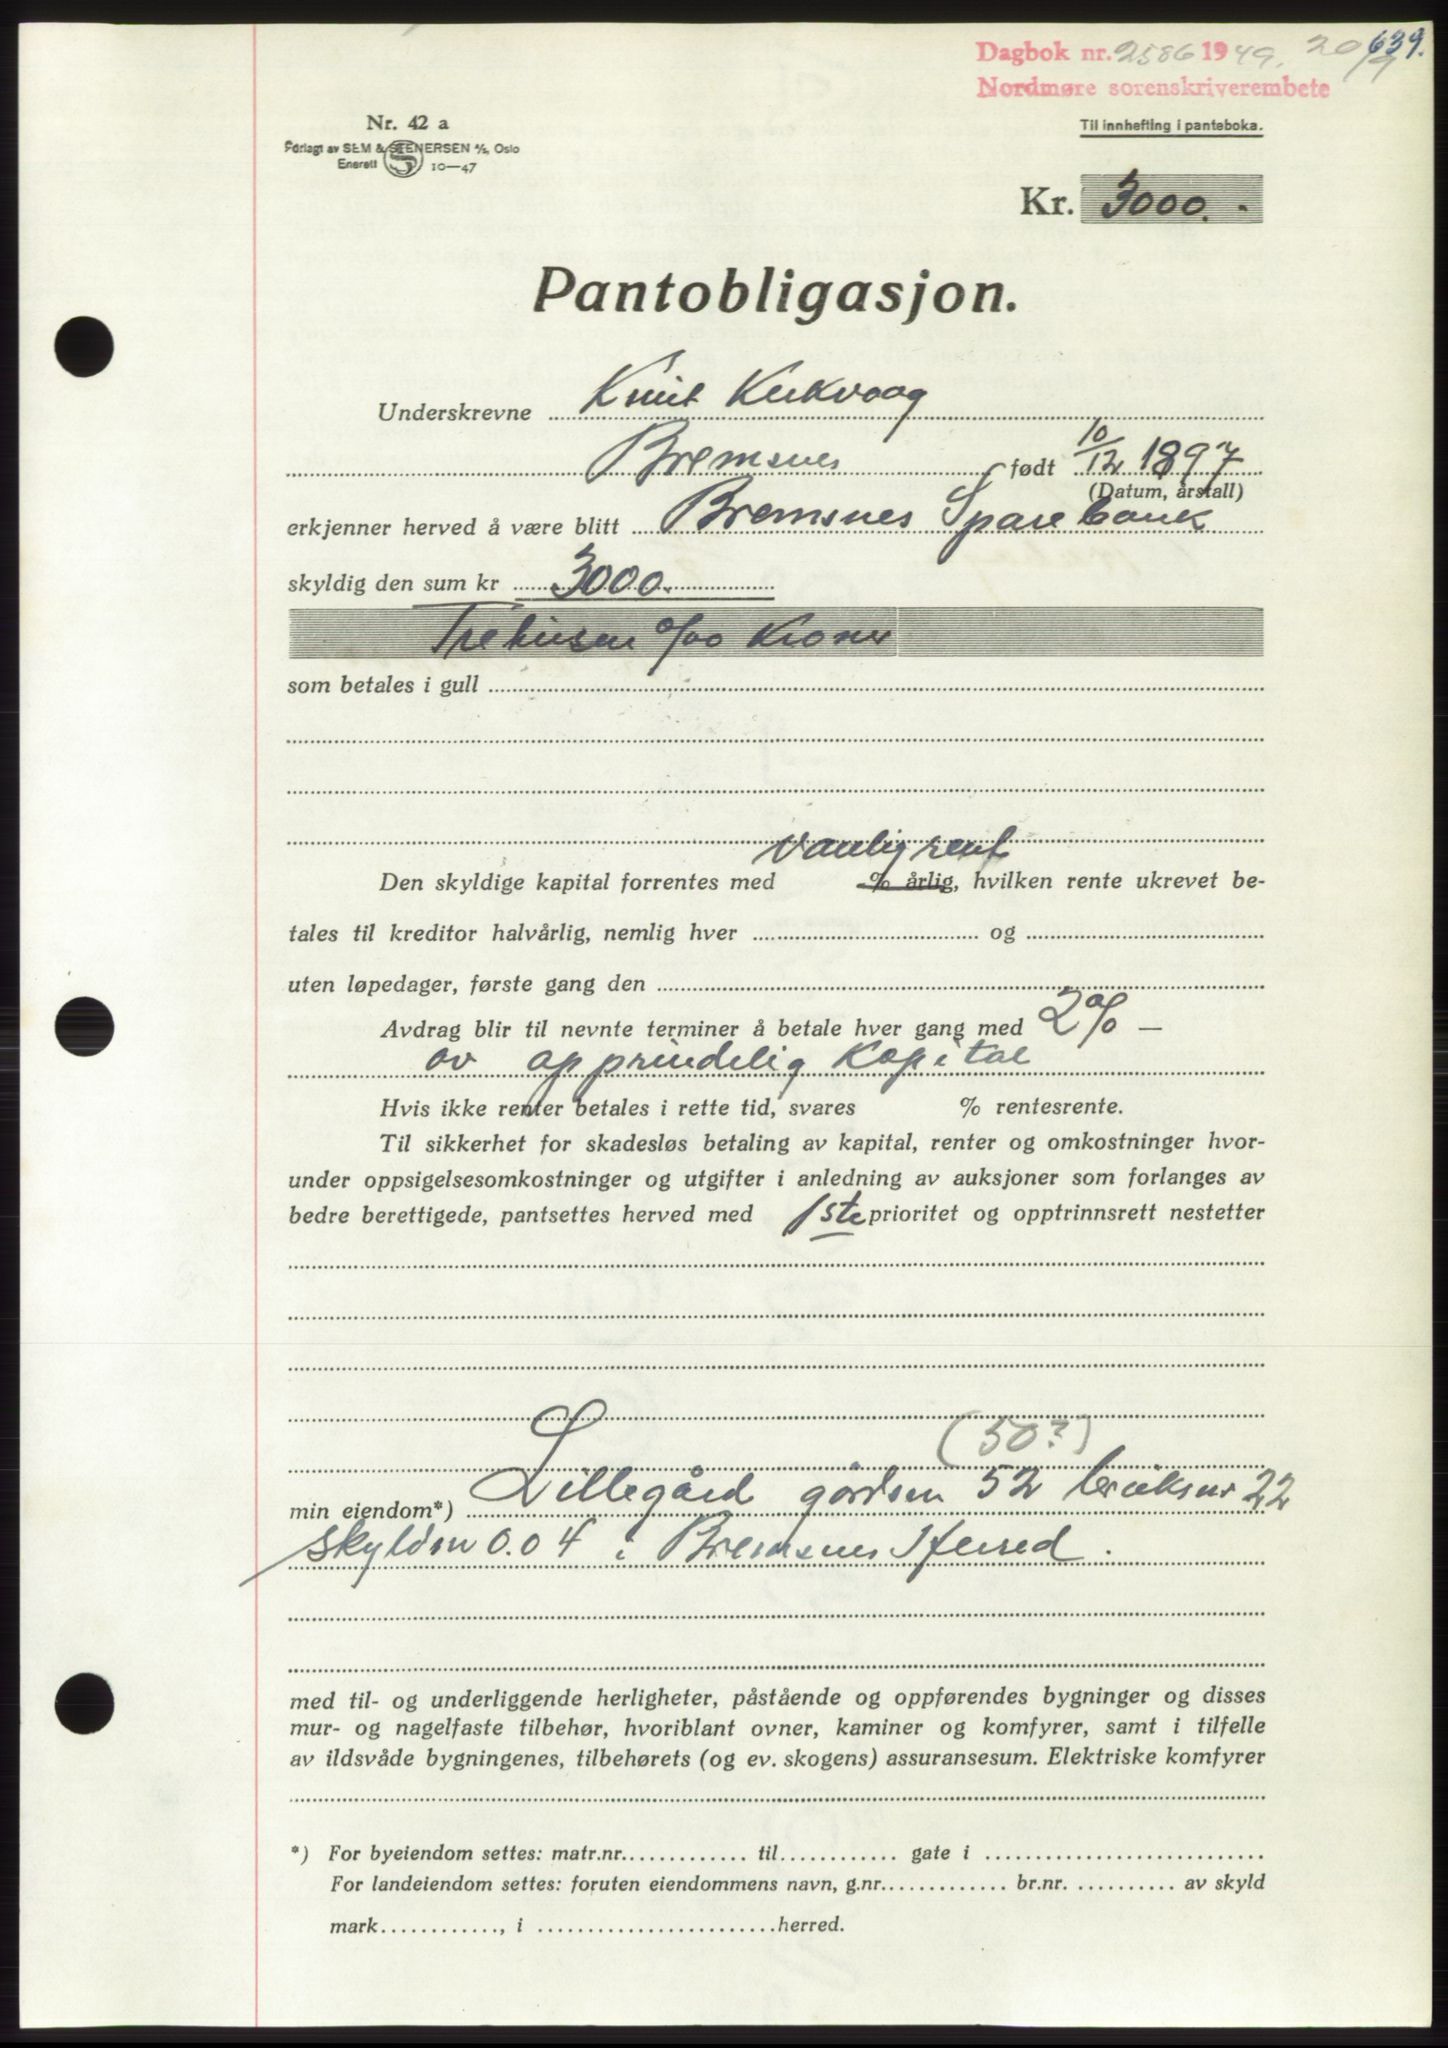 639.
Dagbok nr. 2586 1949. 20/9
Nordmøre sorenskriverembete
Nr. 42 a
Forlagt av SEM & STENERSEN A/S, Oslo
Enerett S 10—47
Til innhefting i panteboka.
Kr. 3000.-
Pantobligasjon.
Underskrevne Knut Kirkvaag
Bremsnes født 10/12 1897
(Datum, årstall)
erkjenner herved å være blitt Bremsnes Sparebank
skyldig den sum kr 3000.
Tretusen 0/00 Kroner
som betales i gull
vanlig rent
Den skyldige kapital forrentes med % årlig, hvilken rente ukrevet be-
tales til kreditor halvårlig, nemlig hver og
uten løpedager, første gang den
Avdrag blir til nevnte terminer å betale hver gang med 2% —
av opprindelig Kapital
Hvis ikke renter betales i rette tid, svares % rentesrente.
Til sikkerhet for skadesløs betaling av kapital, renter og omkostninger hvor-
under oppsigelsesomkostninger og utgifter i anledning av auksjoner som forlanges av
bedre berettigede, pantsettes herved med 1ste prioritet og opptrinnsrett nestetter
(50?)
min eiendom*) Lillegård gårdsnr 52 bruksnr 22
skyldm 0.04 i Bremsnes Herred.
med til- og underliggende herligheter, påstående og oppførendes bygninger og disses
mur- og nagelfaste tilbehør, hvoriblant ovner, kaminer og komfyrer, samt i tilfelle
av ildsvåde bygningenes, tilbehørets (og ev. skogens) assuransesum. Elektriske komfyrer
*) For byeiendom settes: matr.nr. til gate i
For landeiendom settes: foruten eiendommens navn, g.nr. br.nr. av skyld
mark , i herred.